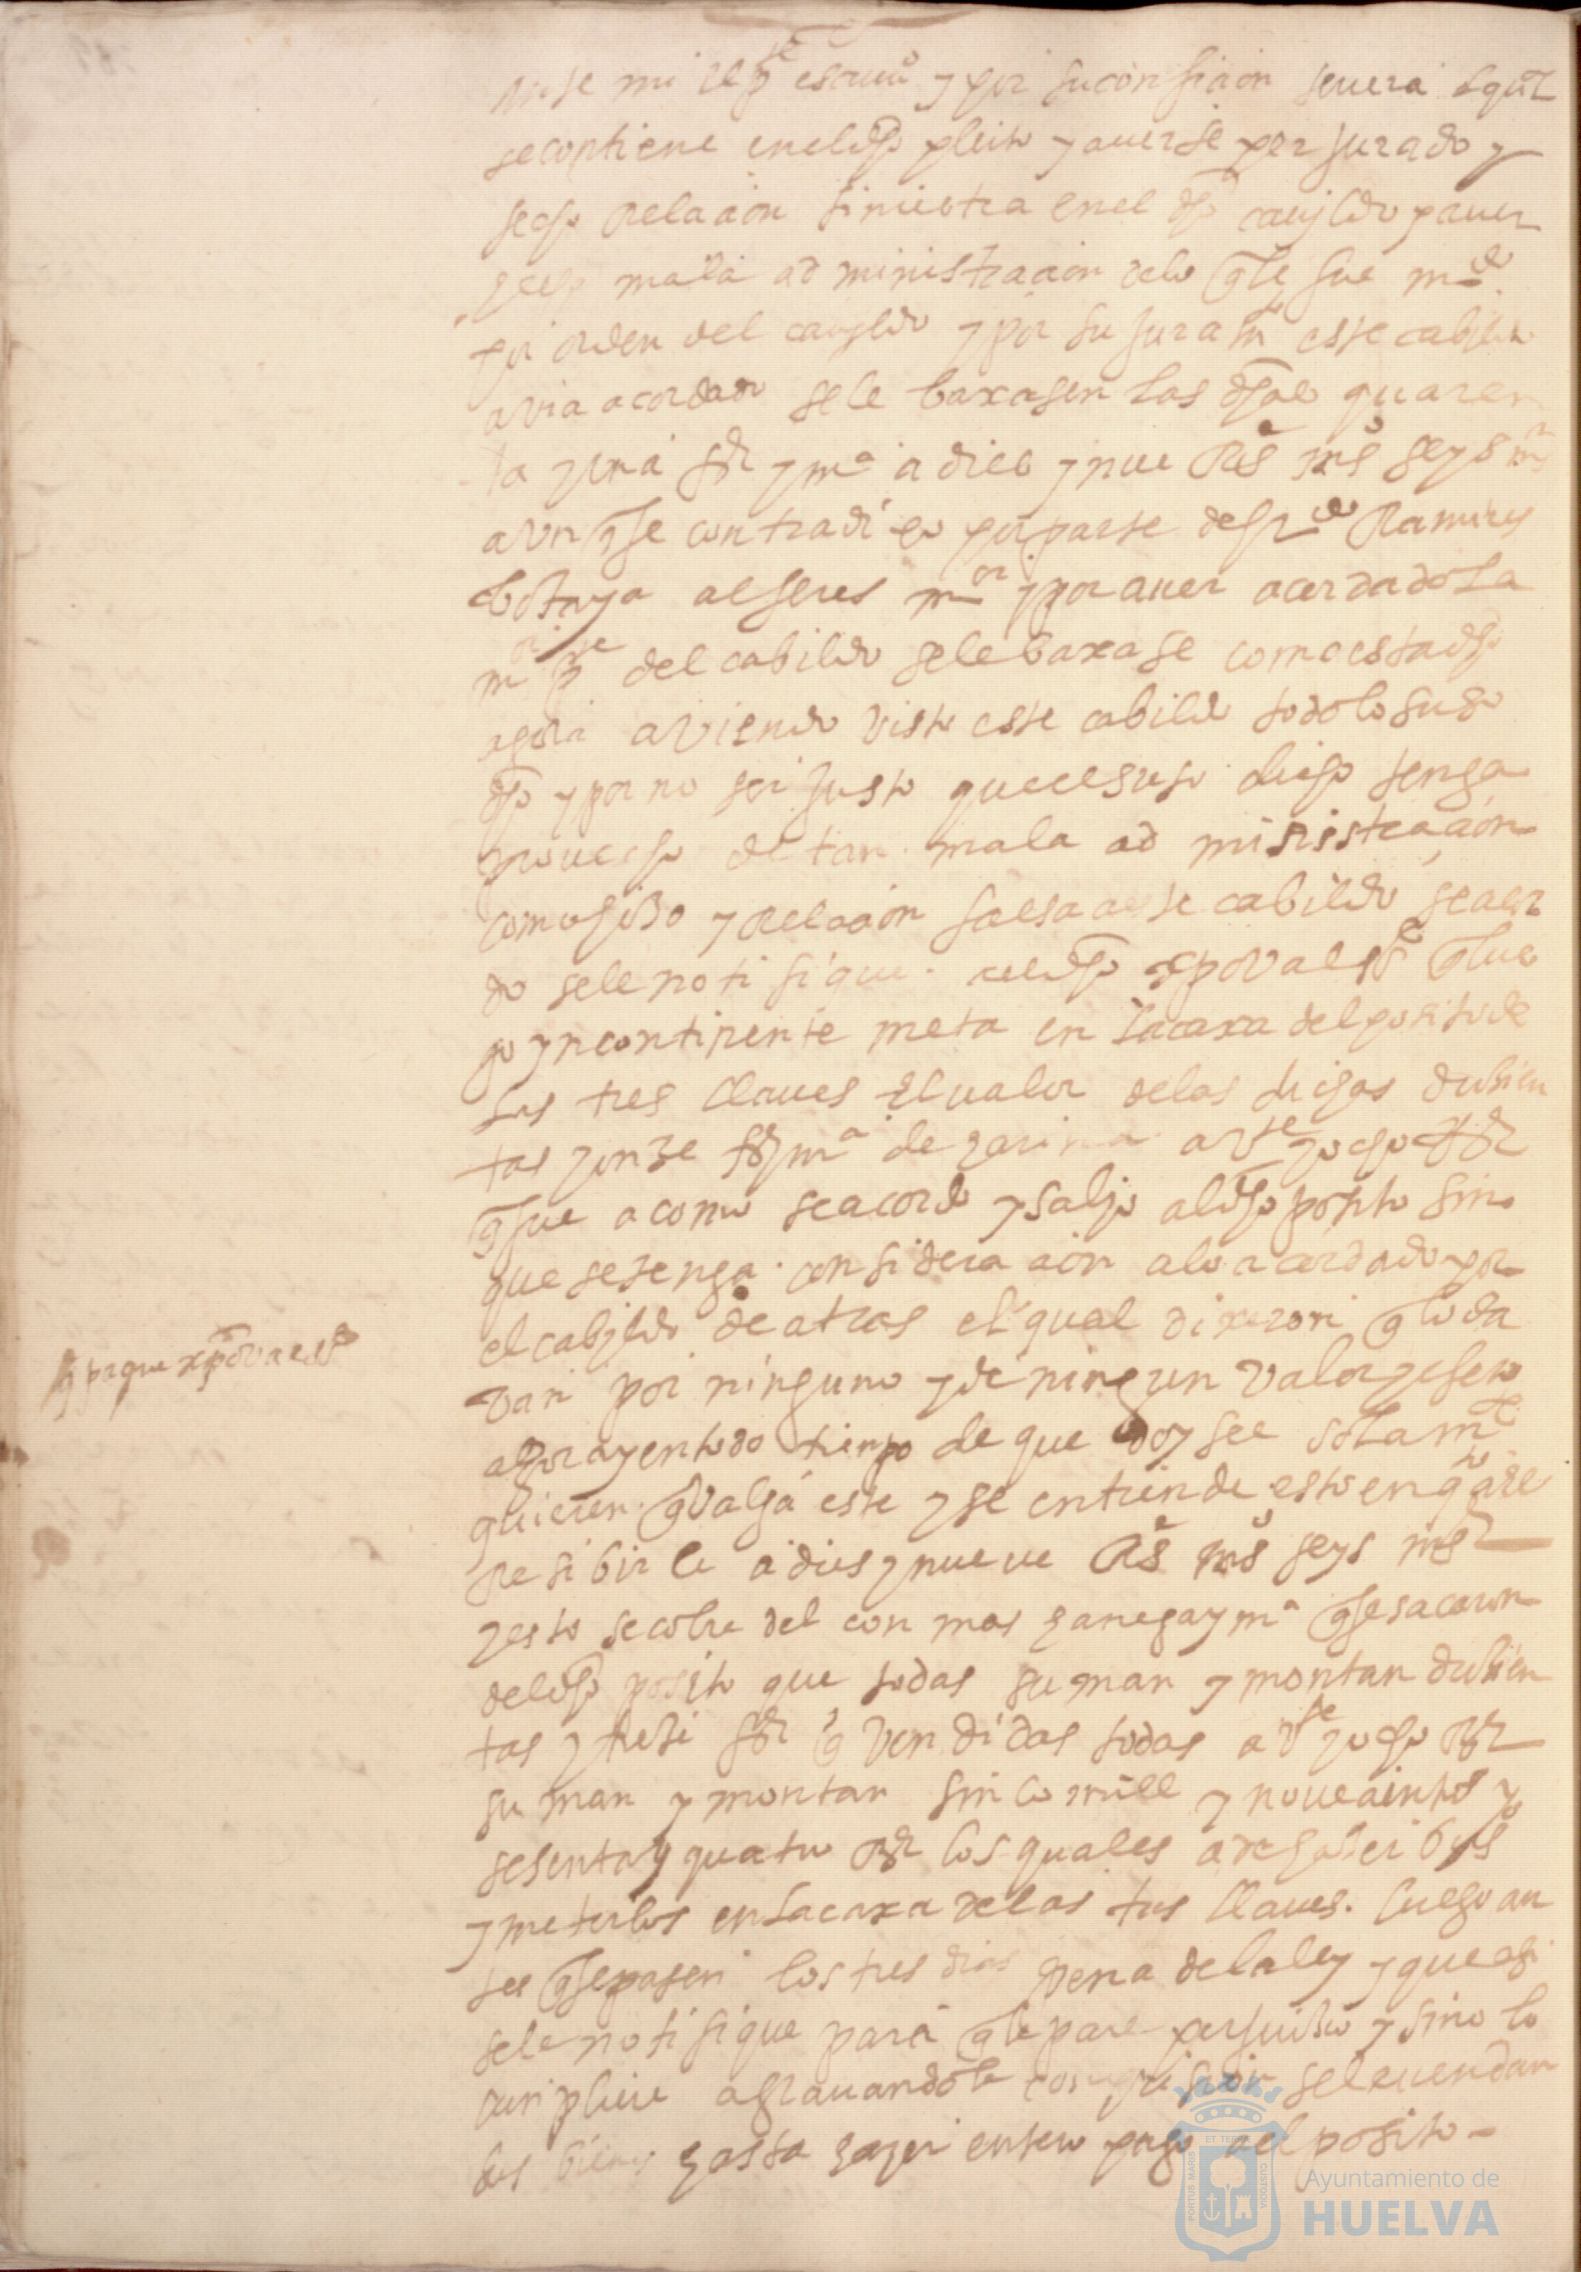 ante mi el pre escriuo y por su confision se vera lo qual
se contiene en el dho pleito y auerse perjurado y
fecho relacion siniestra en el dho cavildo y auer
fecho mala administracion de lo que le fue mdo
por orden del cavyldo y por su juramto este cabildo
avia acordado se le baxasen las dhas quaren
ta y una fas y ma a diez y nueue Rs mas seys ms
avn que se contradixo por parte de frco Ramires
botaya alferes mor y por auer acordado la
mor pte del cabildo se le baxase como esta dho
agora aviendo visto este cabildo todo lo suso
dho y por no ser justo que el suso dicho tenga
prouecho de tan mala administracion
como hizo y relacion falsa a este cabildo se acor
do se le notifique al dho xpoval que lue
go yncontinente meta en la caxa del posito de
las tres llaues el valor de las dichas dusien
tas y onze fas y ma de harina a vte y ocho Rs
que fue a como se acordo y salio al dho posito sin
que se tenga consideracion a lo acordado por
el cabyldo de atras el qual dixeron que lo da
van por ninguno y de ningun valor y efeto
agora y en todo tienpo de que doy fee solamte
quieren que valga este y se entiende esto en qto a le
resibir le a dies y nueve Rs mas seys ms
y esto se cobre del con mas hanega y ma que se sacaron
del dho posito que todas suman y montan dusien
tas y trese fas que vendidas todas a vte y ocho Rs
suman y montan sinco mill y noueaintos y
sesenta y quatro Rs los quales a de
y meterlos en la caxa de las tres llaues luego an
tes que se pasen los tres dias pena de la ley y que asi
se le notifique para que le pare perjuisio y si no lo
cunpliere agrauandole con prision se le vendan
los bienes hasta hazer entero pago al posito
que pague xpoval
ET TERRE
PORTUS MARIS
CUSTODIA
Ayuntamiento de
HUELVA